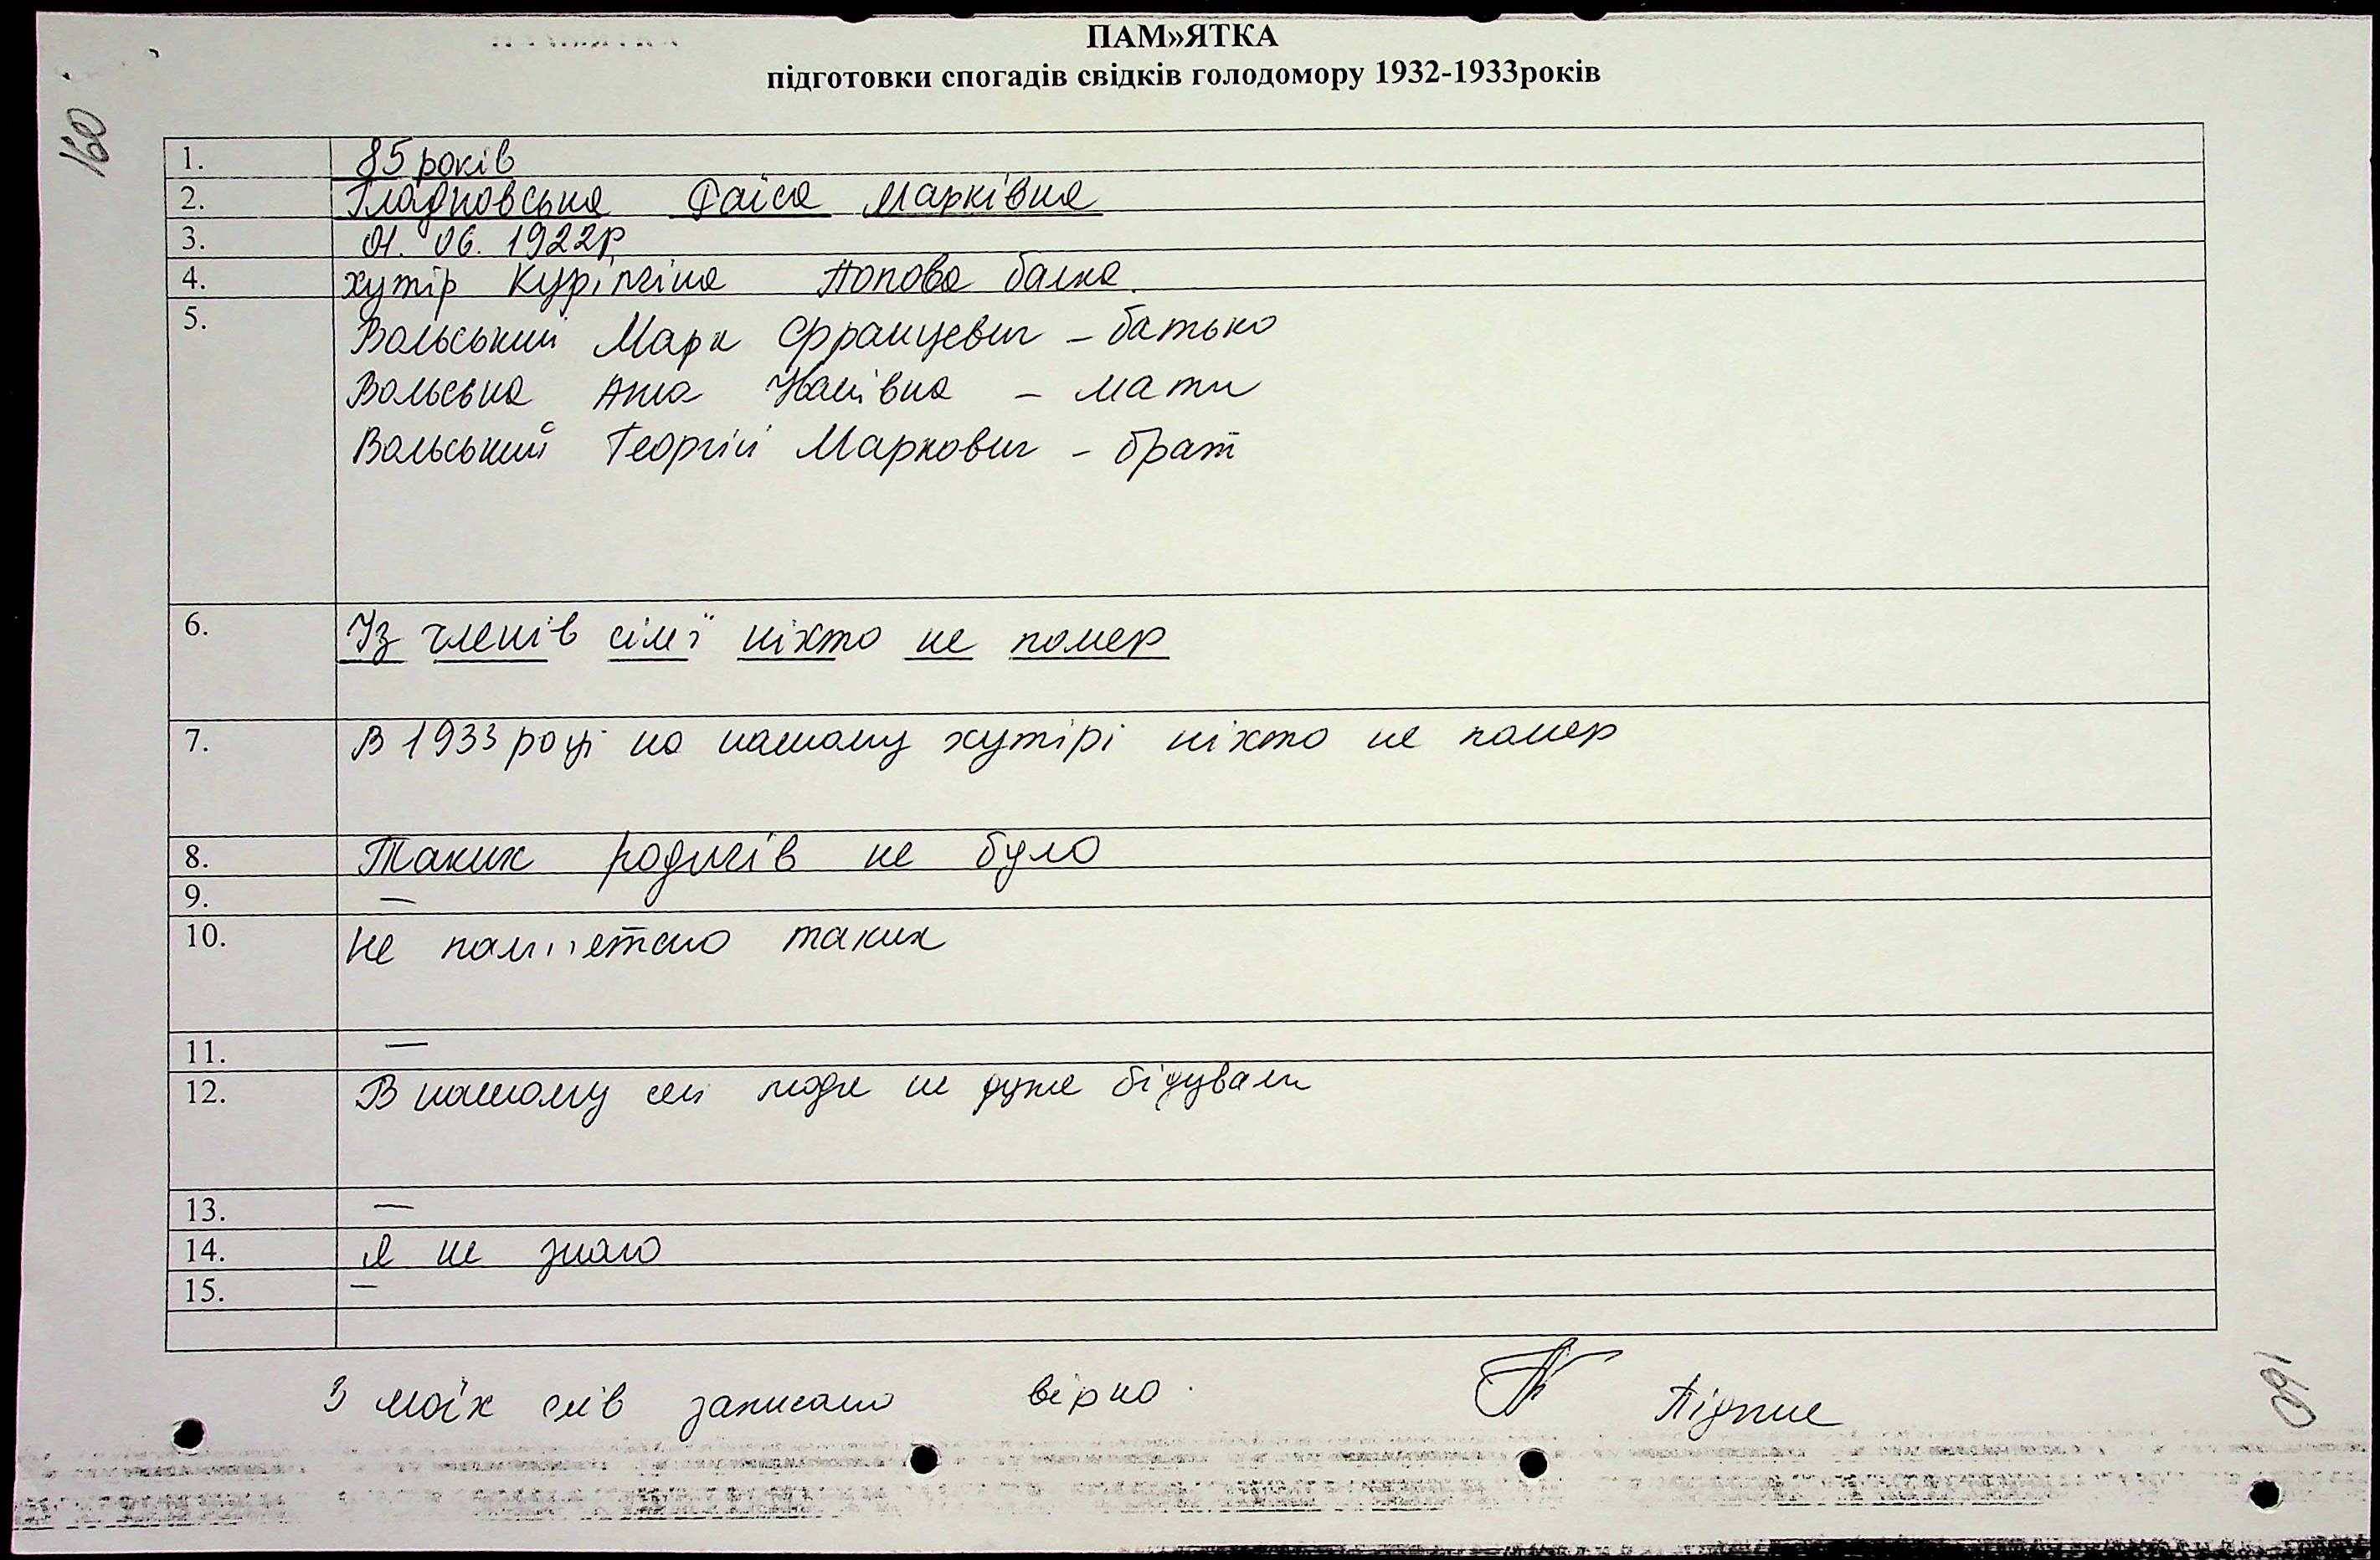 ПАМ»ЯТКА
підготовки спогадів свідків голодомору 1932-1933років
160
1. 85 років
2. Гладковська Раїса Марківна
3. 01. 06. 1922р.
4. хутір Попова балка.
5. Вольський Марк Францевич – батько
Вольська Анна Іванівна – мати
Вольський Георгій Маркович – брат
6. Із членів сімї ніхто не помер
7. В 1933 році на нашому хутірі ніхто не помер
8. Таких родичів не було
9. —
10. Не памʼятаю таких
11. —
12. В нашому селі люди не дуже бідували
13. —
14. Я не знаю
15. –
З моїх слів записано вірно. Підпис
160